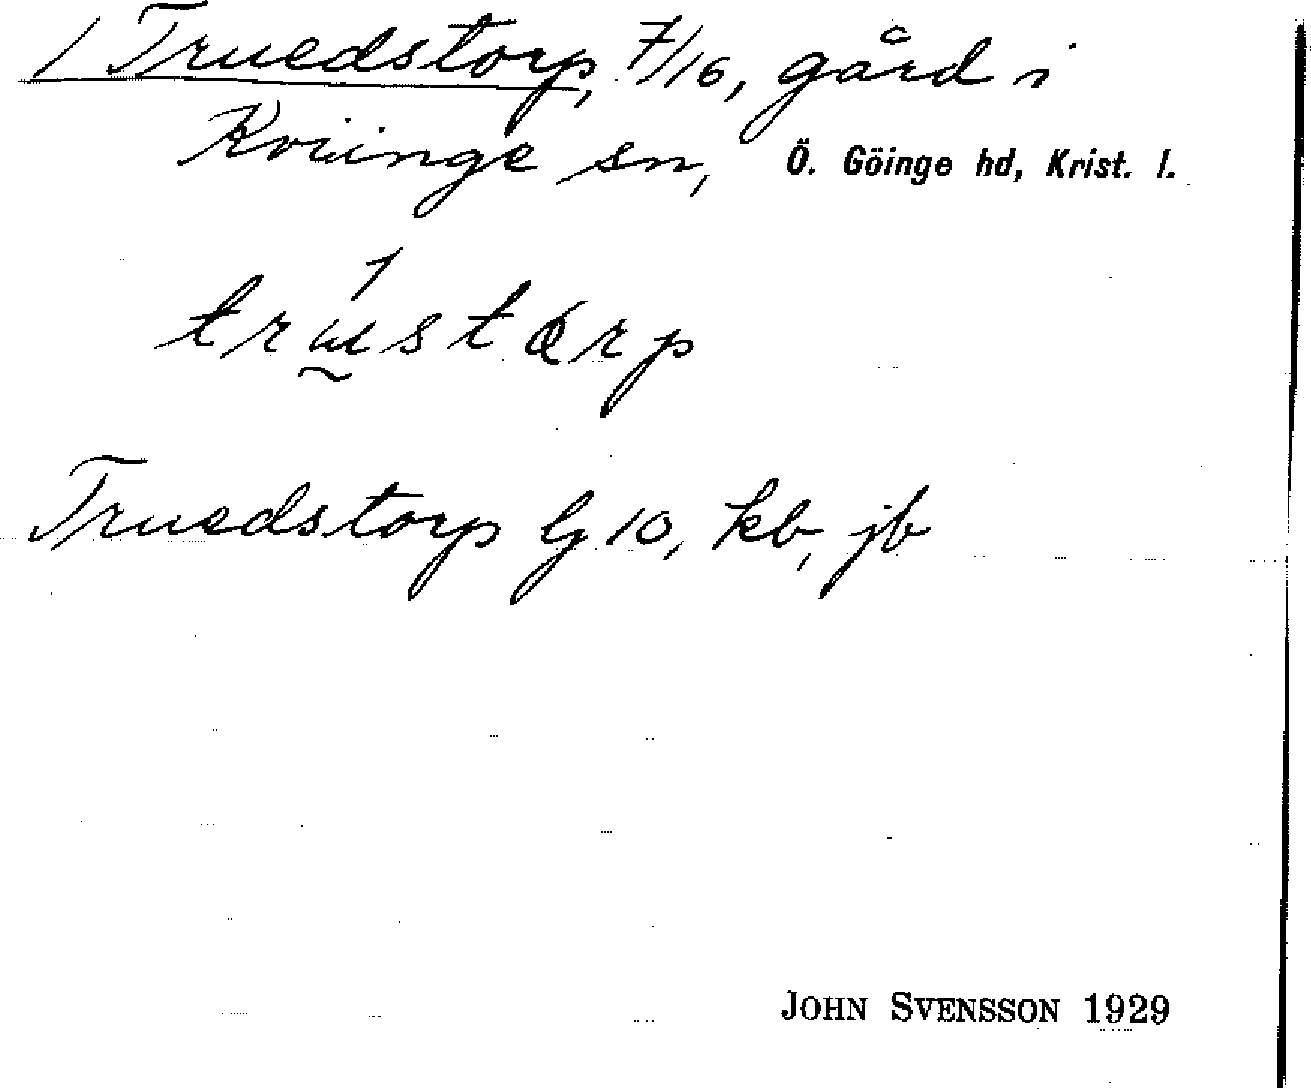 1 Truedstorp, 7/16, gård i
Kviinge sn, Ö. Göinge hd, Krist. l.
Truedstorp lj 10, kb, jb
JOHN SVENSSON 1929